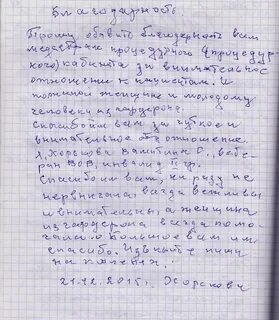 Благодарность
Прошу объявить благодарность всем
медсестрам процедурного (процедур
ного) кабинета за внимательное
отношение к пациентам. И
пожилой женщине и молодому
человеку из гардероба.
Спасибо им всем за чуткое и
внимательное отношение.
Я, Валентина вете
ран ВОВ, инвалид II гр.
Спасибо им всем ни разу не
всегда вежливы
и внимательны, а женщина
из гардероба всегда помо
гала. Большое вам
спасибо. пишу
на
21.12.2015г.